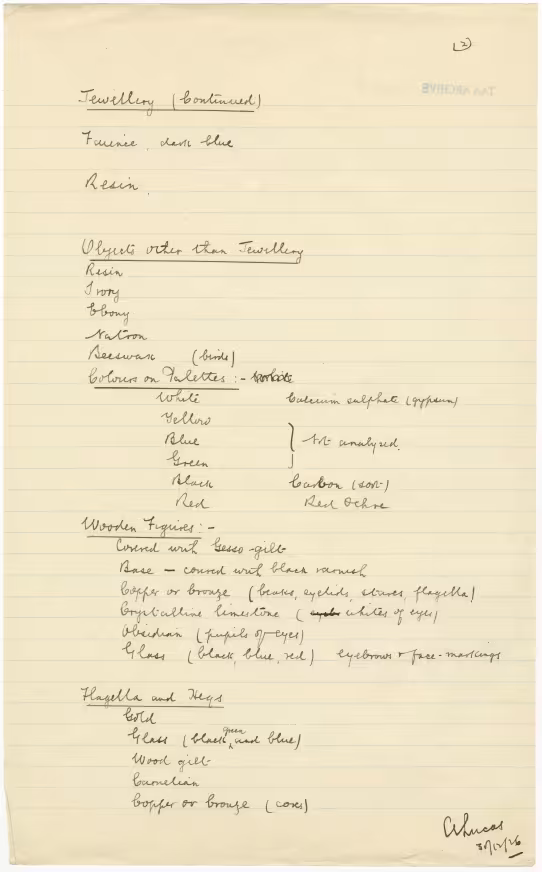 (2)
TAA ARCHIVE
Jewellery (Continued)
Faience, dark blue
Resin.
Objects other than Jewellery
Resin
Ivory
Ebony
Natron
Beeswax (birds)
Colours on Palettes :-
White Calcium sulphate (gypsum)
Yellow
Blue } Not analyzed.
Green
Black Carbon (soot)
Red Red Ochre
Wooden Figures :-
Covered with Gesso-gilt
Base - covered with black varnish
Copper or bronze (beaks, eyelids, staves, flagella)
Crystalline limestone (whites of eyes)
Obsidian (pupils of eyes)
Glass (black, blue, red) eyebrows & face-markings
Flagella and Heqs
Gold
Glass (black, green and blue)
Wood gilt
Carnelian
Copper or bronze (cores)
A Lucas
30/12/26